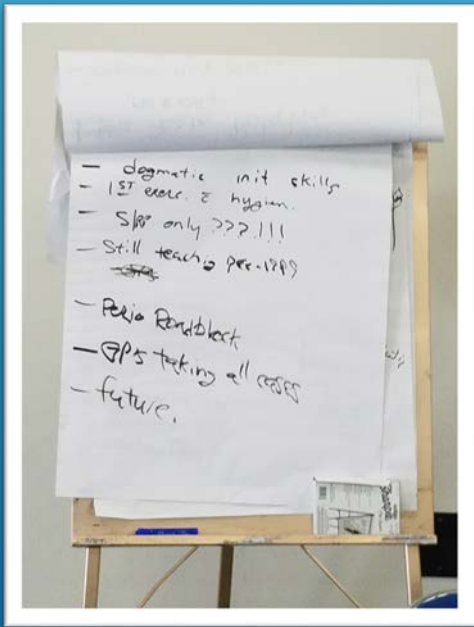 — dogmatic init skills
- 1ST exerc. c̄ hygien.
- only ???!!!
- Still teaching
- Perio Roadblock
- GPs taking all cases
- future.